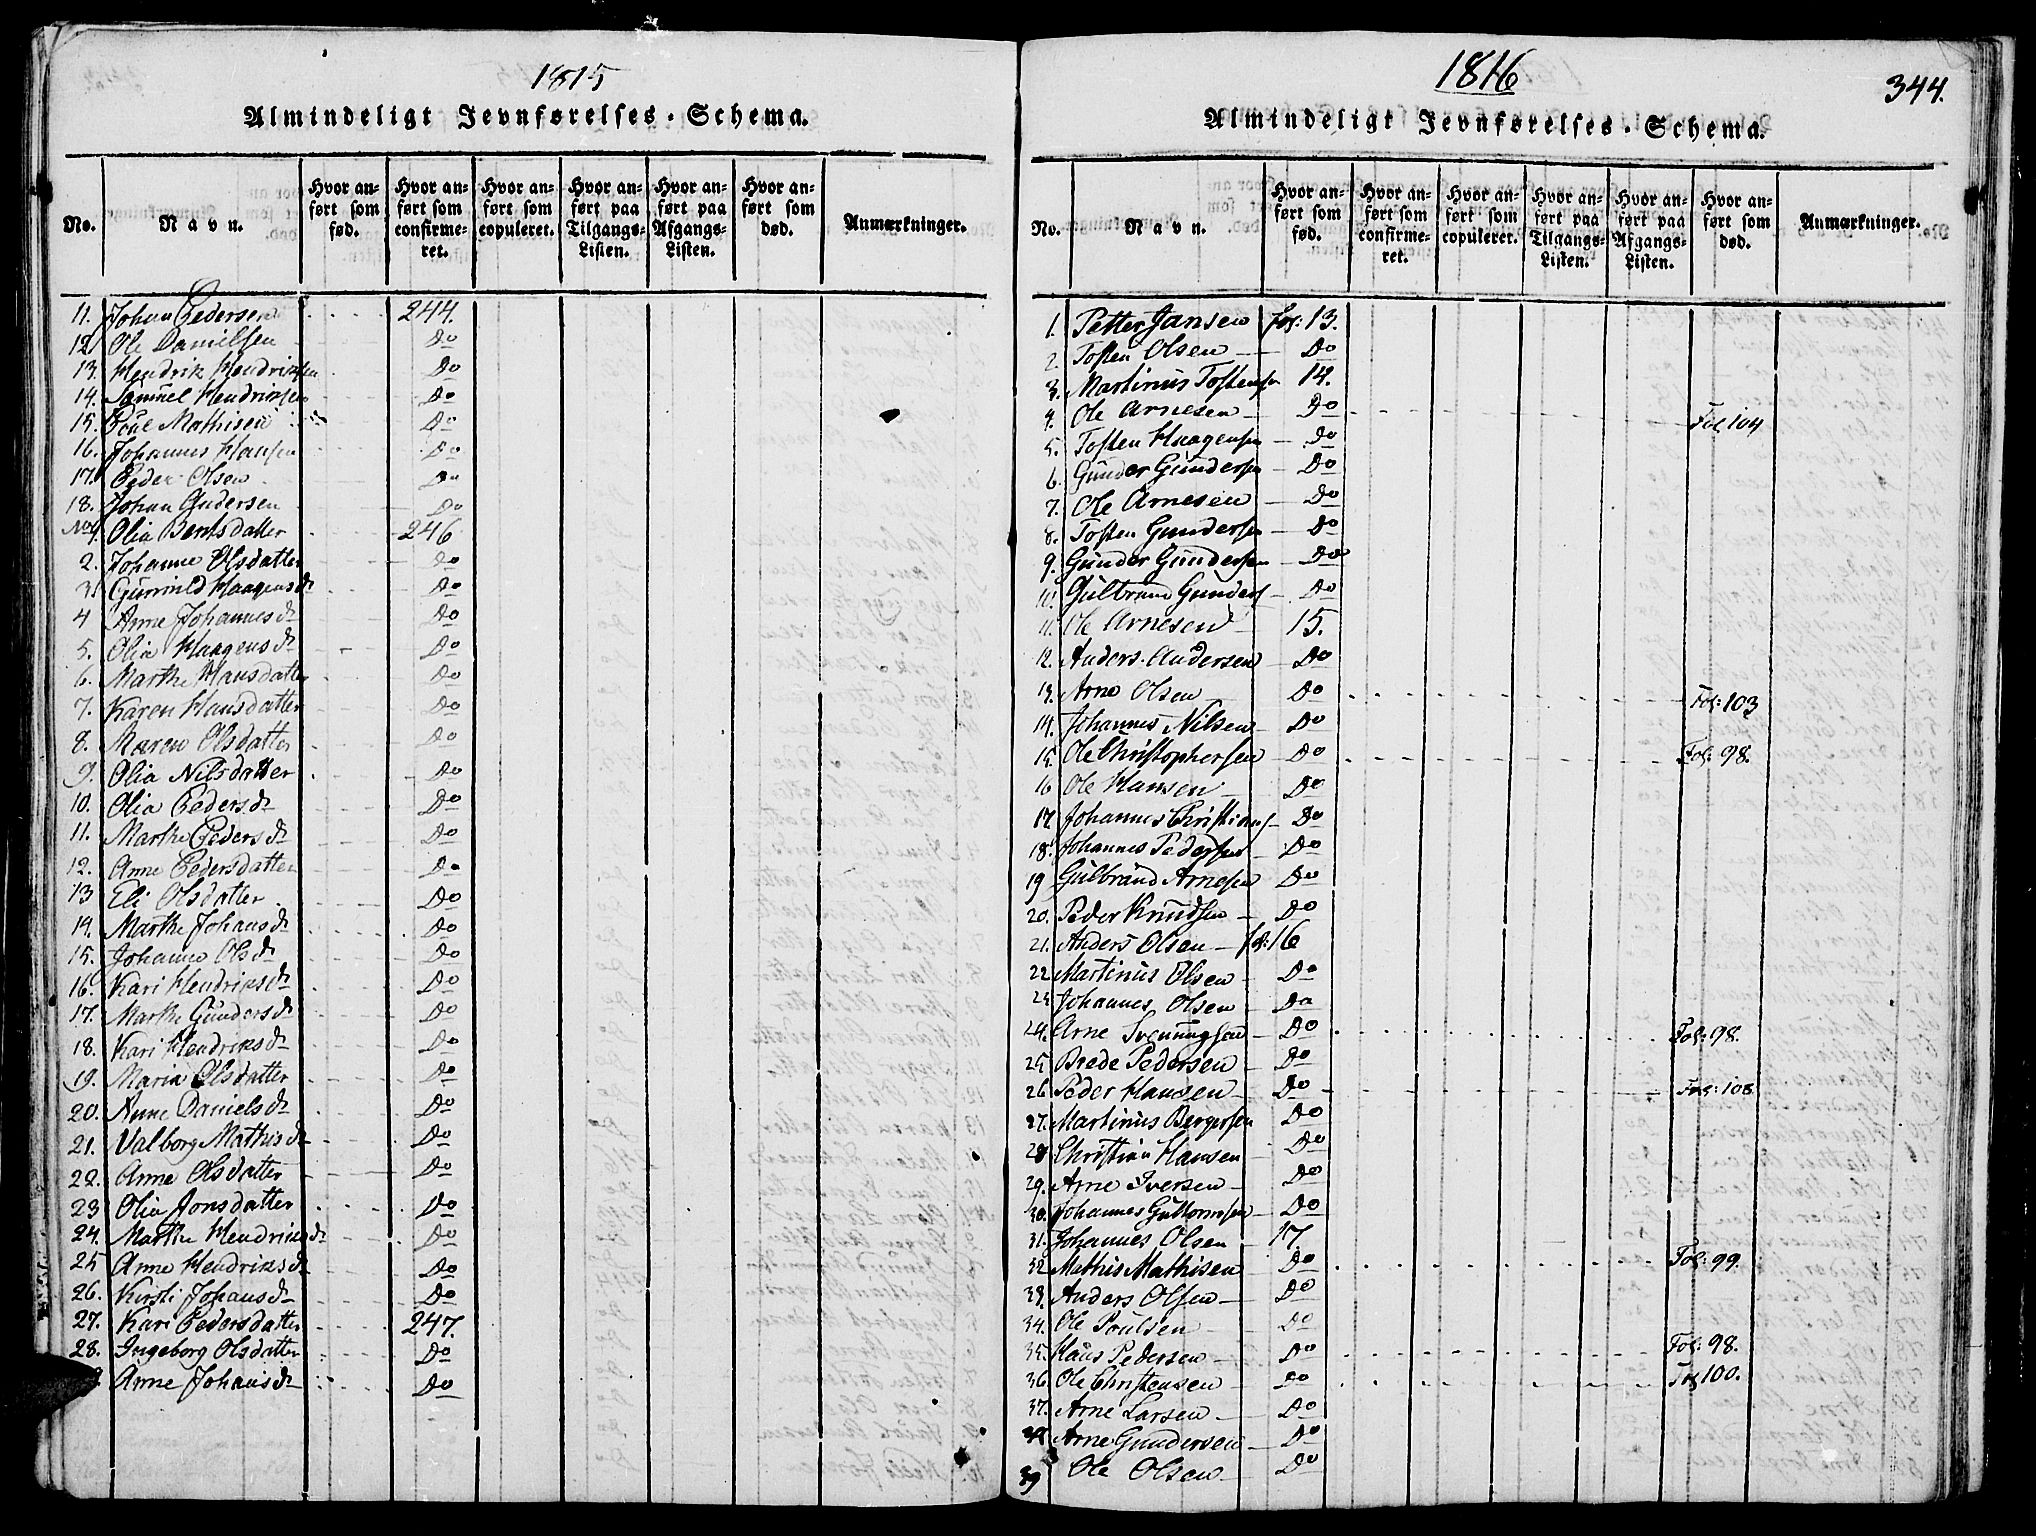 1815
Almindeligt Jevnførelses-Schema.
No. Navn. Hvor anført som fød. Hvor anført som confirmeret. Hvor anført som copuleret. Hvor anført paa Tilgangs-Listen. Hvor anført paa Afgangs-Listen. Hvor anført som død. Anmærkninger.
11. Johan Pedersen 244.
12. Ole Danielsen Do
13. Hendrik Hendriksen Do
14. Samuel Hendriksen Do
15. Poul Mathisen Do
16. Johannes Hansen Do
17. Peder Olsen Do
18. Johan Andersen Do
No 1. Olia Bentsdatter 246
2. Johanne Olsdatter Do
3. Gunnild Haagensdr Do
4 Anne Johannesdr Do
5. Olia Haagensdr Do
6. Marthe Hansdatter Do
7. Karen Hansdatter Do
8. Maren Olsdatter Do
9. Olia Nilsdatter Do
10. Olia Pedersdr Do
11. Marthe Pedersdr Do
12. Anne Pedersdatter Do
13 Eli Olsdatter Do
14. Marthe Johansdr Do
15. Johanne Olsdr Do
16. Kari Hendriksdr Do
17. Marthe Gundersdr Do
18. Kari Hendriksdr Do
19. Maria Olsdatter Do
20. Anne Danielsdr Do
21. Valborg Mathisdr Do
22. Anne Olsdatter Do
23 Olia Jonsdatter Do
24. Marthe Hendriksdr Do
25 Anne Hendriksdr Do
26. Kirsti Johansdr Do
27. Kari Pedersdatter 247.
28. Ingeborg Olsdatter Do
Anne Johansdr Do
1816
344.
Almindeligt Jevnførelses-Schema.
No. Navn. Hvor anført som fød. Hvor anført som confirmeret. Hvor anført som copuleret. Hvor anført paa Tilgangs-Listen. Hvor anført paa Afgangs-Listen. Hvor anført som død. Anmærkninger.
1. Petter Jansen fol: 13.
2. Tosten Olsen Do
3. Martinus Tostensen 14.
4. Ole Arnesen Do Fol 104
5. Tosten Haagensen Do
6. Gunder Gundersen Do
7. Ole Arnesen Do
8. Tosten Gundersen Do
9. Gunder Gundersen Do
Gulbrand Gunders Do
11. Ole Arnesen 15.
12. Anders Andersen Do
13. Arne Olsen Do Fol: 103
14. Johannes Nilsen Do
15. Ole Christophersen Do Fol: 98.
16 Ole Hansen Do
17. Johannes Christians Do
18. Johannes Pedersen Do
19 Gulbrand Arnesen Do
20. Peder Knudsen Do
21. Anders Olsen fol: 16
22 Martinus Olsen Do
23 Johannes Olsen Do
24. Arne Svenningsen Do Fol: 98.
25 Brede Pedersen Do
26 Peder Hansen Do Fol: 108
27. Martinus Bergersen Do
28 Christian Hansen Do
29. Arne Iversen Do
30. Johannes Guttormsen Do
31. Johannes Olsen 17.
32 Mathis Mathisen Do Fol: 99.
33. Anders Olsen Do
34. Ole Poulsen Do
35. Hans Pedersen Do Fol: 98.
36. Ole Christensen Do Fol 100.
37. Arne Larsen Do
38 Arne Gundersen Do
39 Ole Olsen Do